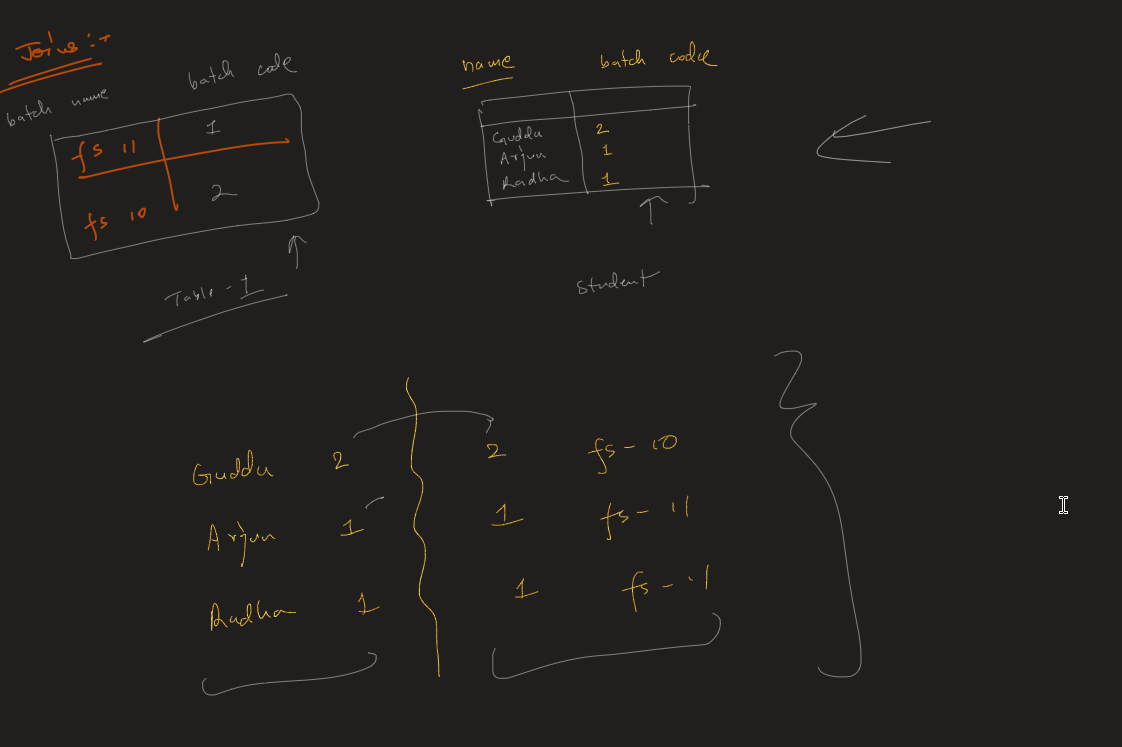 Joins :-
batch name batch code
fs 11 1
fs 10 2
Table - 1
name batch code
Guddu 2
Arjun 1
Radha 1
student
Guddu 2 2 fs - 10
Arjun 1 1 fs - 11
Radha 1 1 fs - 11